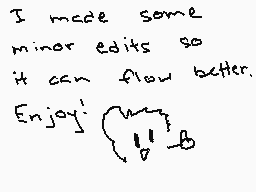 I made some
minor edits so
it can flow better.
Enjoy!